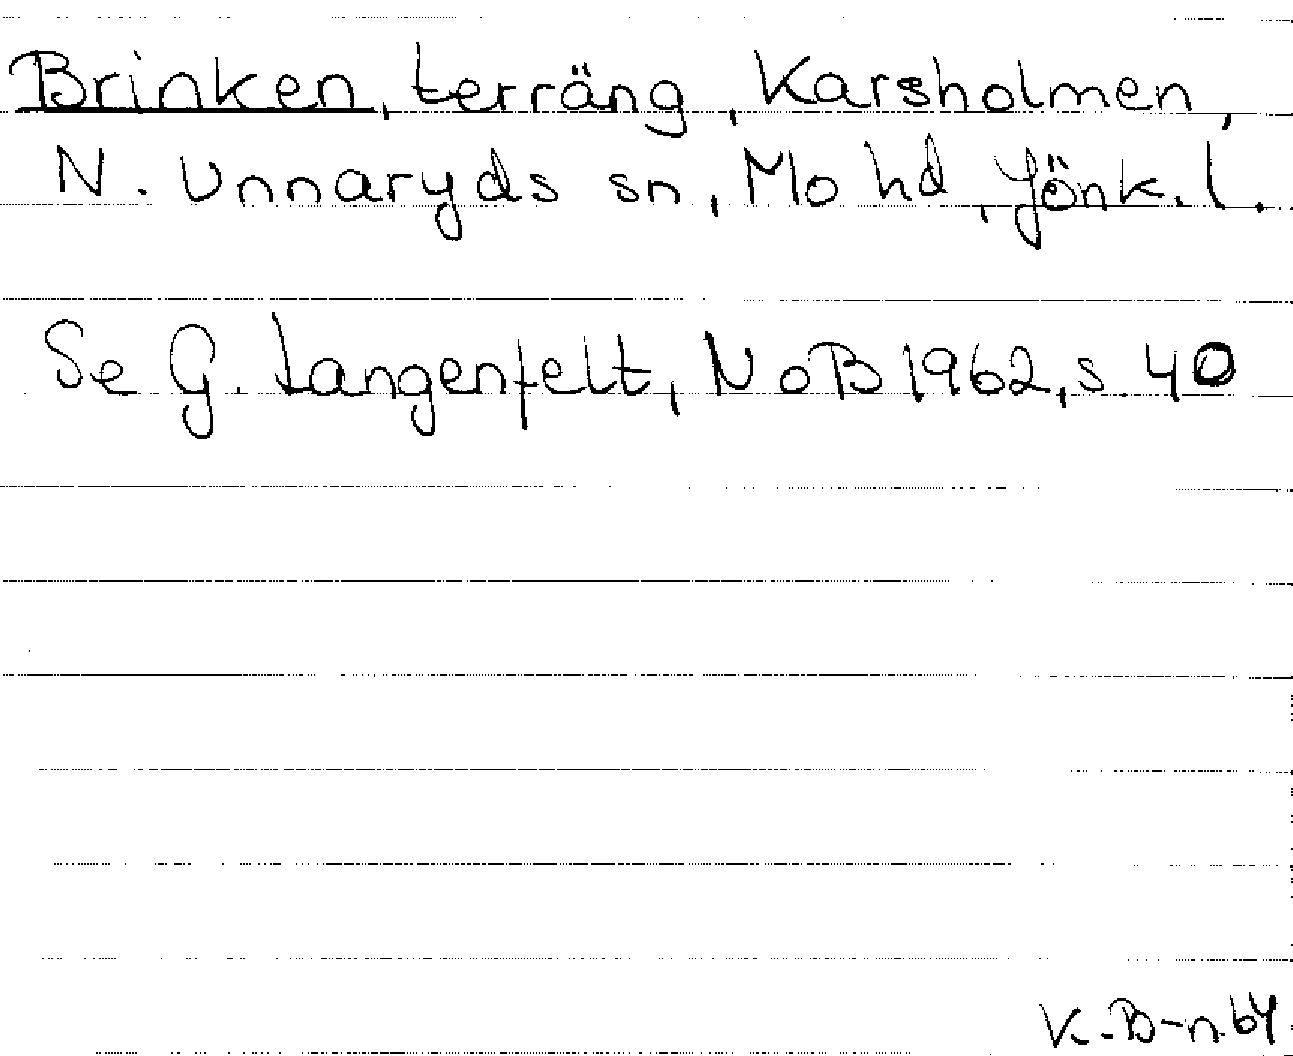 Brinken, terräng, Karsholmen,
N. Unnaryds sn, Mo hd, Jönk. l.
Se G. Langenfelt, NoB 1962, s. 40
K. B-n. 64